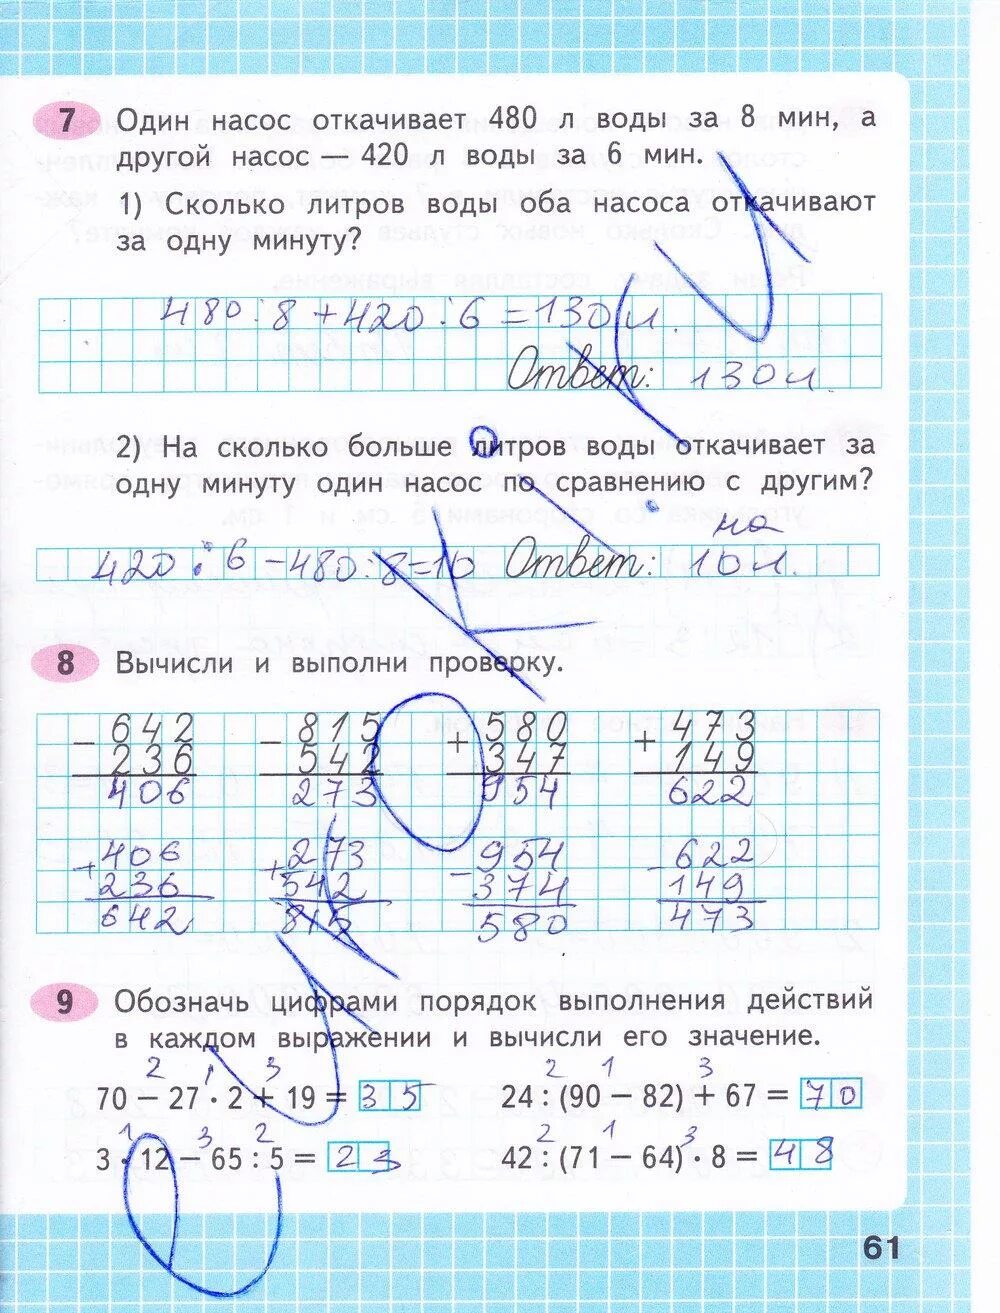 7 Один насос откачивает 480 л воды за 8 мин, а
другой насос — 420 л воды за 6 мин.
1) Сколько литров воды оба насоса откачивают
за одну минуту?
480:8+420:6=130 л.
Ответ: 130 л
2) На сколько больше литров воды откачивает за
одну минуту один насос по сравнению с другим?
на
420:6-480:8=10 Ответ: 10 л.
8 Вычисли и выполни проверку.
- 642 - 815 + 580 + 473
236 542 347 149
406 273 954 622
+ 406 + 273 - 954 - 622
236 542 374 149
642 815 580 473
9 Обозначь цифрами порядок выполнения действий
в каждом выражении и вычисли его значение.
2 1 3 2 1 3
70 − 27 · 2 + 19 = 35 24 : (90 − 82) + 67 = 70
1 3 2 2 1 3
3 · 12 − 65 : 5 = 23 42 : (71 − 64) · 8 = 48
61